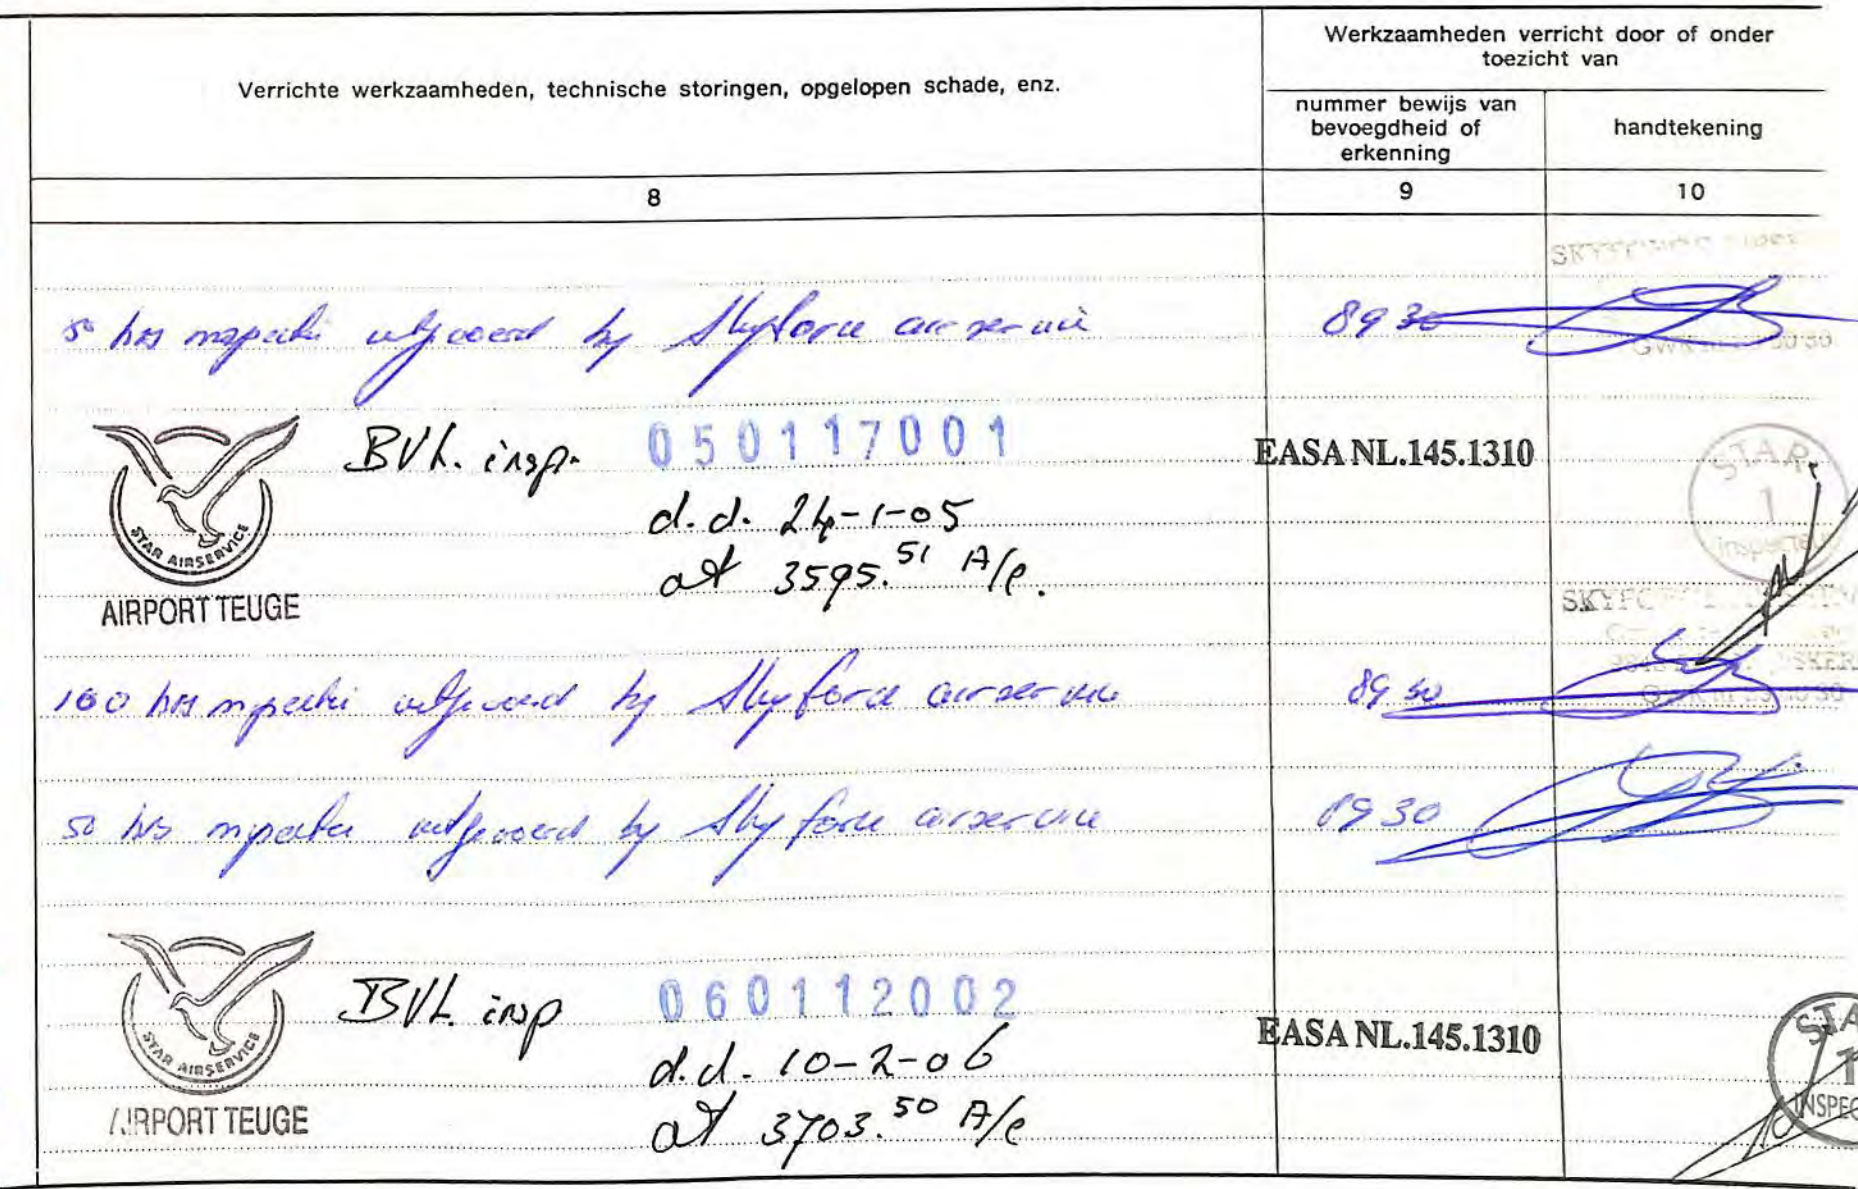 Verrichte werkzaamheden, technische storingen, opgelopen schade, enz.
Werkzaamheden verricht door of onder
toezicht van
nummer bewijs van
bevoegdheid of
erkenning
handtekening
8
9
10
50 hrs inspectie uitgevoerd by Skyforce airservice
8930
STAR AIRSERVICE
AIRPORT TEUGE
BVL. insp. 050117001
d.d. 24-1-05
at 3595.51 A/c.
EASA NL.145.1310
STAR
1
inspecteur
100 hrs inspectie uitgevoerd by Skyforce airservice
8930
50 hrs inspectie uitgevoerd by Skyforce airservice
8930
STAR AIRSERVICE
AIRPORT TEUGE
BVL insp 060112002
d.d. 10-2-06
at 3703.50 A/c
EASA NL.145.1310